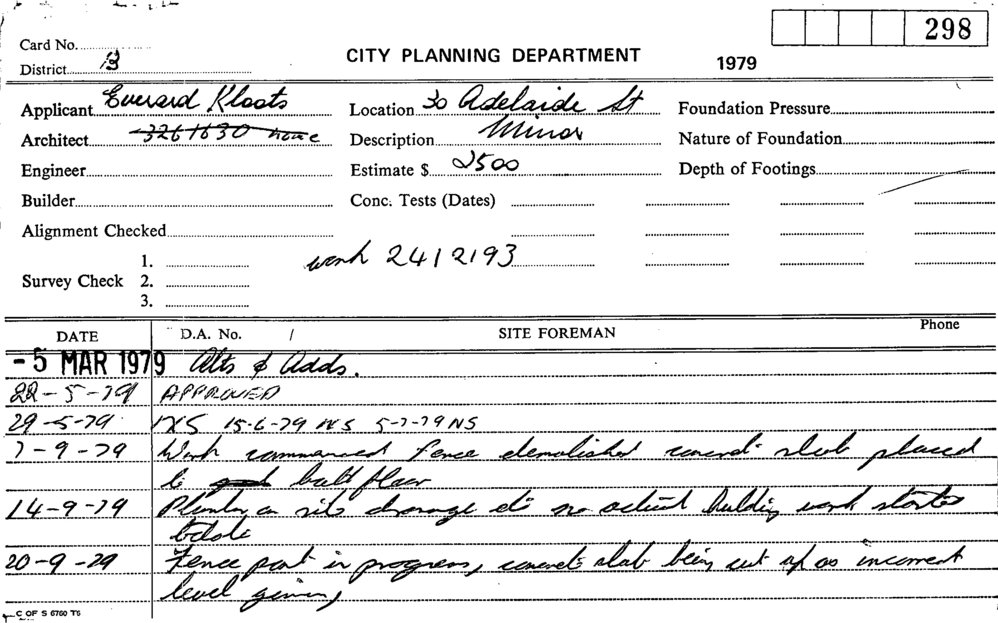 298
Card No.
District B
CITY PLANNING DEPARTMENT 1979
Applicant Everard Kloots Location 30 Adelaide St Foundation Pressure
Architect 3261630 home Description Minor Nature of Foundation
Engineer Estimate $ 2500 Depth of Footings
Builder Conc. Tests (Dates)
Alignment Checked
1. work 2412193
Survey Check 2.
3.
DATE D.A. No. / SITE FOREMAN Phone
- 5 MAR 1979 Alts & Adds.
22-5-79 APPROVED
29-5-79 NS 15-6-79 NS 5-7-79 NS
7-9-79 Work commenced Fence demolished concrete slab placed
to bath floor
14-9-79 Plumber on site drainage etc no actual building work started
to date
20-9-79 Fence part in progress, concrete slab being cut up as incorrect
level given
C OF S 6760 T6